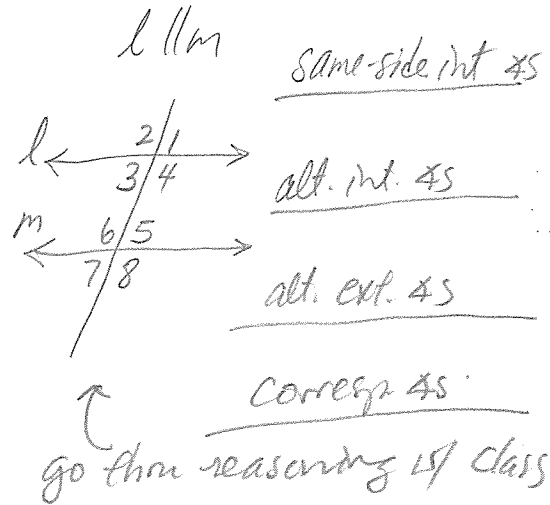 l || m
same-side int ∡s
2 1
l
3 4
alt. int. ∡s
m
6 5
7 8
alt. ext. ∡s
corresp. ∡s.
go thru reasoning w/ class